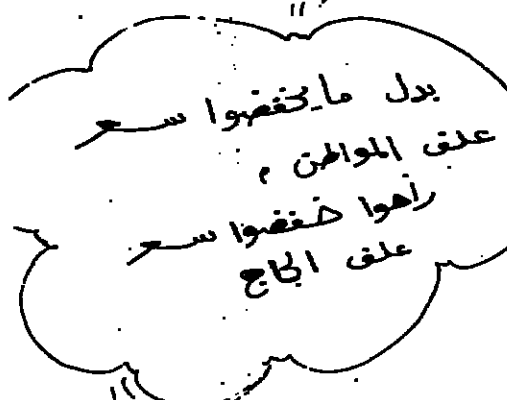 بدل ما يخفضوا سعر
علف المواطن ،
راهوا خفضوا سعر
علف الجاج